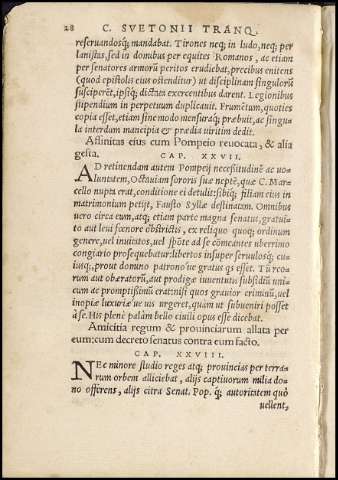 28 C. SVETONII TRANQ.
reseruandosq́; mandabat. Tirones neq; in ludo, neq; per
lanistas, sed in domibus per equites Romanos, ac etiam
per senatores armorũ peritos erudiebat, precibus enitens
(quod epistolis eius ostenditur) ut disciplinam singulorũ
susciperẽt, ipsiq́; dictata exercentibus darent. Legionibus
stipendium in perpetuum duplicauit. Frumẽtum, quoties
copia esset, etiam sine modo mensuraq́; præbuit, ac singu
la interdum mancipia & prædia uiritim dedit.
Affinitas eius cum Pompeio reuocata, & alia
gesta. CAP. XXVII.
AD retinendam autem Pompeij necessitudinẽ ac uo
luntatem, Octauiam sororis suæ neptẽ, quæ C. Mar
cello nupta erat, conditione ei detulit: sibiq́; filiam eius in
matrimonium petijt, Fausto Syllæ destinatam. Omnibus
uero circa eum, atq; etiam parte magna senatus, gratui
to aut leui fœnore obstrictis, ex reliquo quoq; ordinum
genere, uel inuitatos, uel spõte ad se cõmeantes uberrimo
congiario prosequebatur: libertos insuper seruulosq́; cu
iusq;, prout domino patronóue gratus q́s esset. Tũ reo
rum aut obæratorũ, aut prodigæ iuuentutis subsidiũ uni
cum ac promptissimũ erat: nisi quos grauior criminũ, uel
inopiæ luxuriæ ue uis urgeret, quàm ut subueniri posset
à se. His planè palàm bello ciuili opus esse dicebat.
Amicitia regum & prouinciarum allata per
eum: cum decreto senatus contra eum facto.
CAP. XXVIII.
NEc minore studio reges atq; prouincias per terra
rum orbem alliciebat, alijs captiuorum milia do
no offerens, alijs citra Senat. Pop. q́; autoritatem quò
uellent,